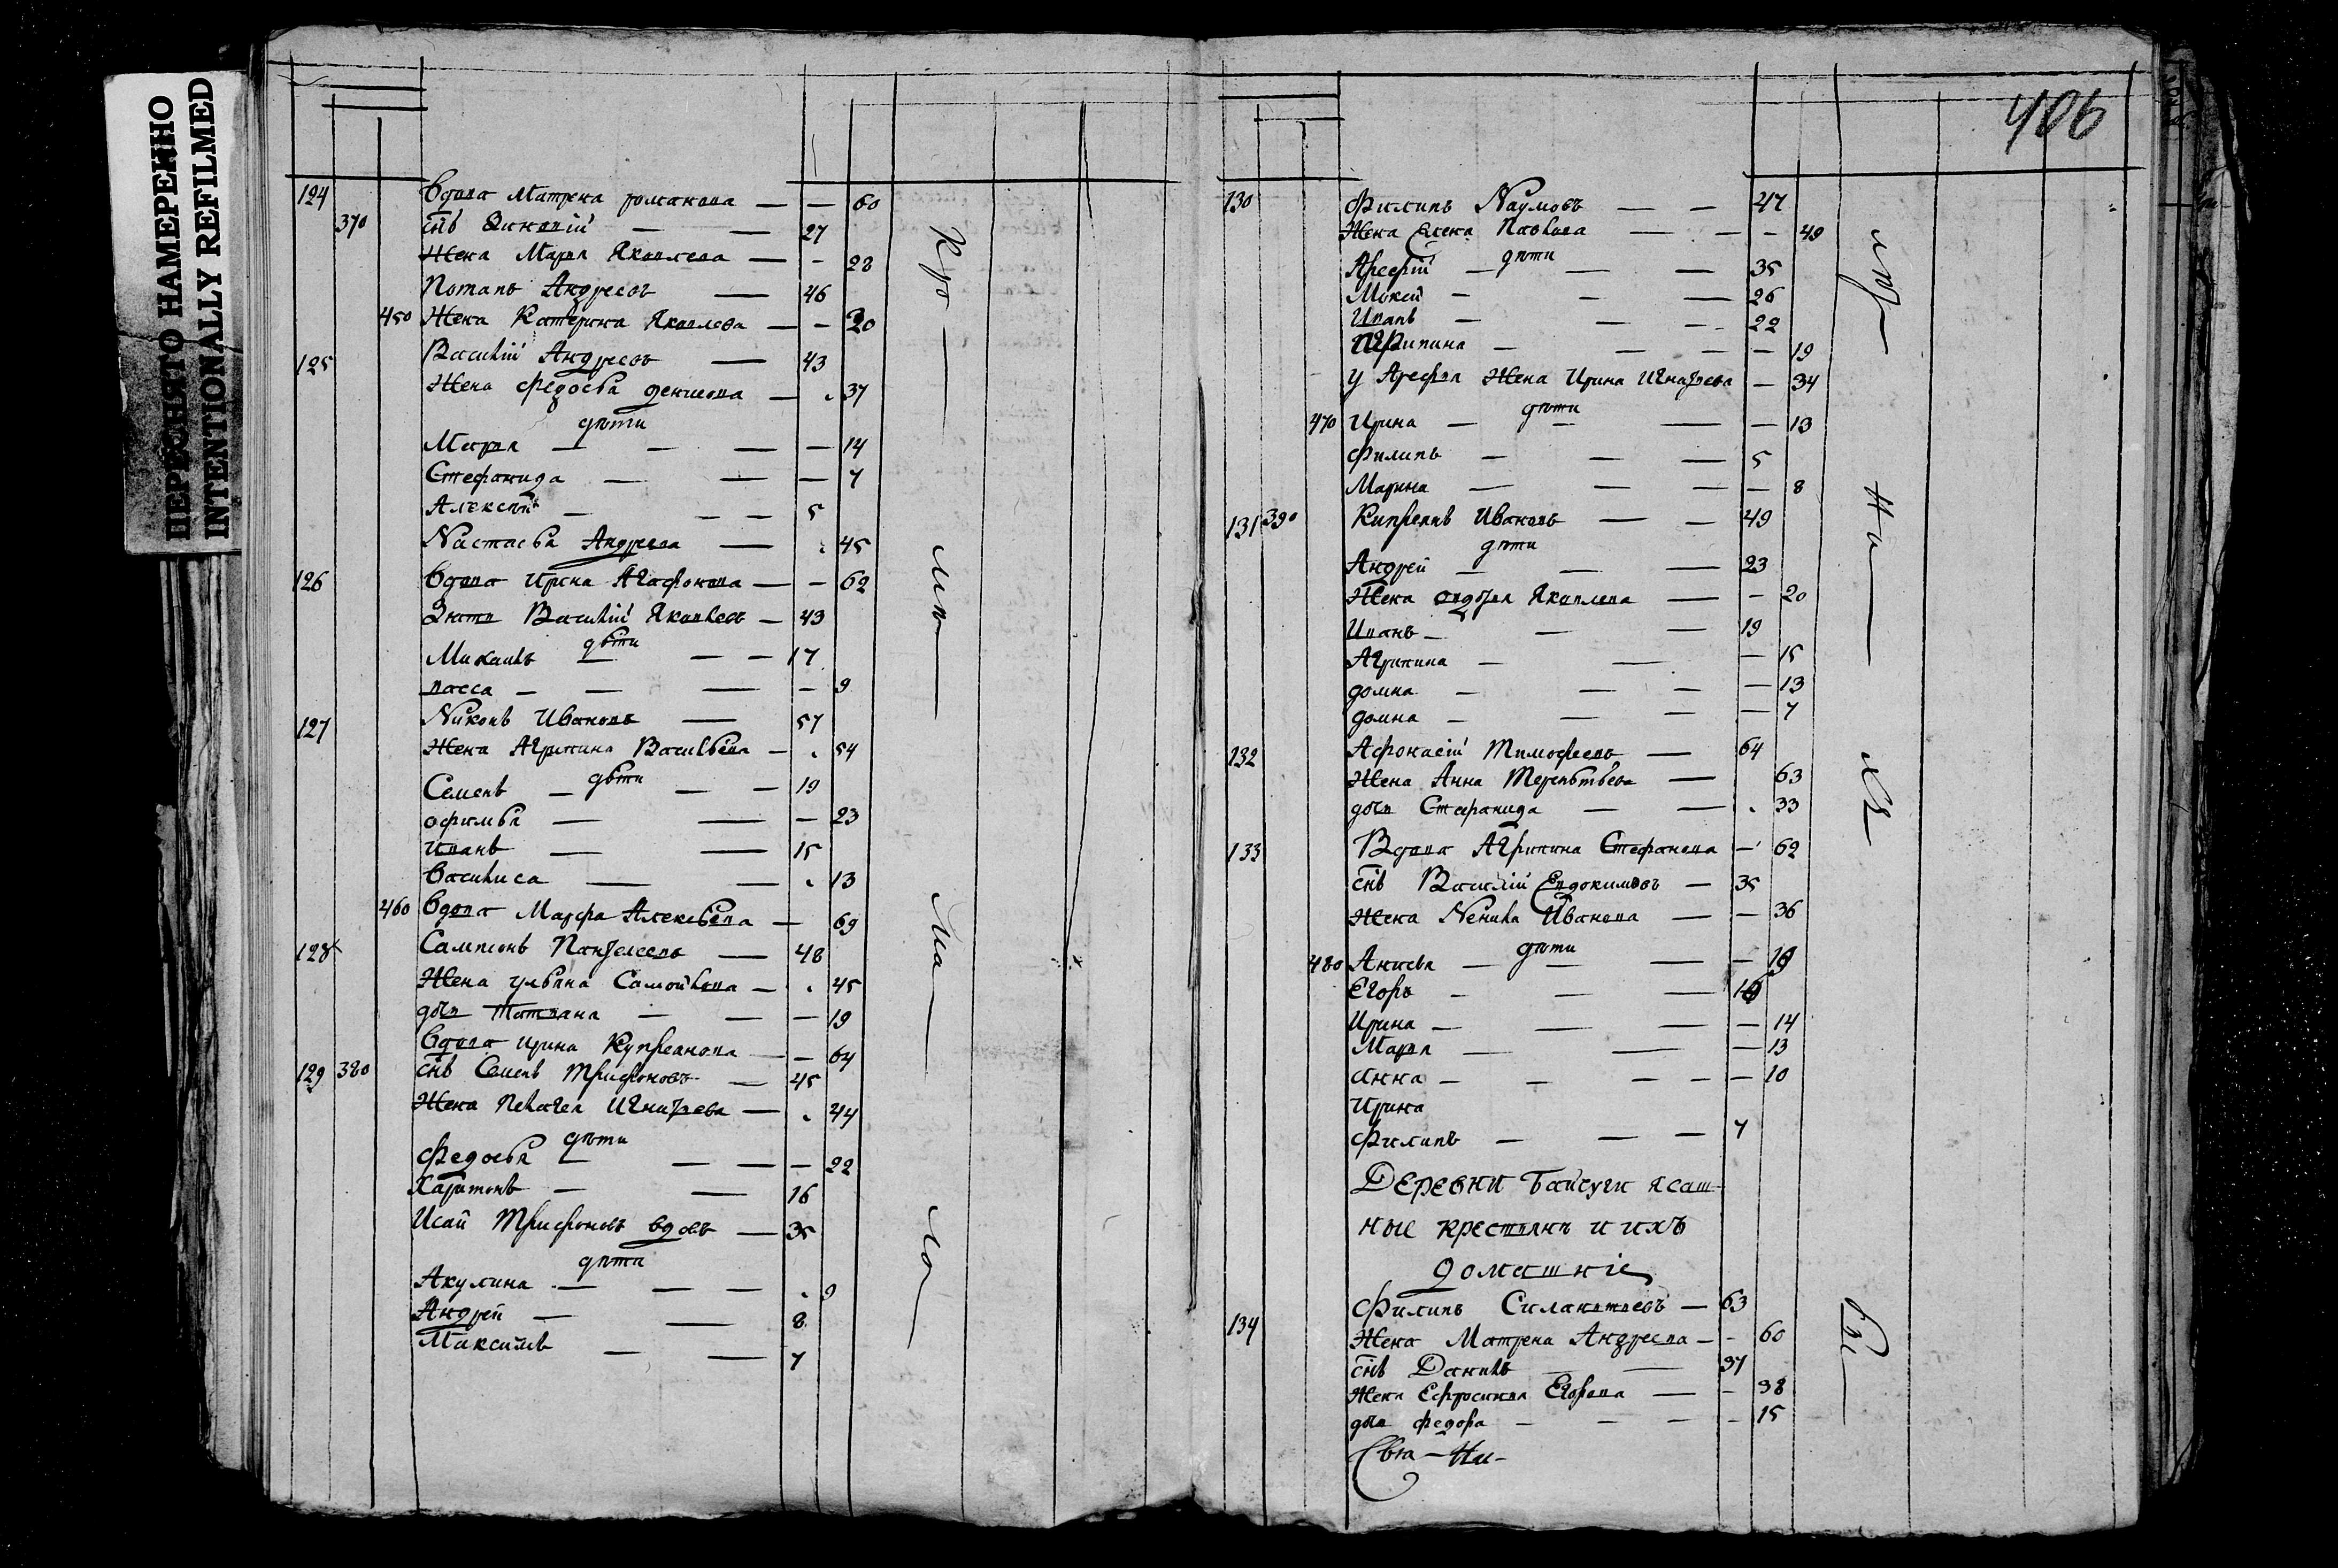 ПЕРЕСНЯТО НАМЕРЕННО
INTENTIONALLY REFILMED
124 Вдова Матрена романова — — 60
370 снъ — — 27
Жена Маря Яковлева — - 28
Потапъ Андреевъ — 46
450 Жена Катерина Яковлева — - 20
125 Василий Андреевъ — 43
Жена федосья денисова — . 37
дѣти
Маря — — — — 14
Стефанида — — — 7
Алексѣй — — — 5
Настасья Андреева — . 45
126 Вдова Ирина Агафонова — - 62
Зять Василий Яковлевъ — 43
дѣти
Михаилъ — — — 17
васса — — — — 9
127 Никонъ Ивановъ — 57
Жена Агрипина Васильева — . 54
дѣти
Семенъ — — — 19
офимья — — — 23
иванъ — — 15
василиса — — . 13
460 Вдова Марфа Алексѣева — 69
128 Сампсонъ Пантелеевъ — 48
Жена ульяна Самойлова — . 45
дочь Татьяна — — — 19
Вдова ирина Купреанова — — 64
129 380 снъ Семенъ Трифоновъ — 45
Жена Пелагея Игнатьева — . 44
дѣти
Федосья — — — — 22
Харитонъ — — 16
Исай Трифоновъ вдовъ — 35
дѣти
Акулина — — — . 9
Андрей — — 8
Максимъ — — 7
406
130 Филипъ Наумовъ — — 47
Жена Елена Павлова — - - 49
дѣти
Арефий — — — 35
Мокей — - — 26
Иванъ — — — 22
Агрипина — — — — 19
у Арефья Жена Ирина Игнатьева — 34
дѣти
470 Ирина — — — — 13
Филипъ — — — 5
Марина — — — — 8
131 390 Киприянъ Ивановъ — — 49
дѣти
Андрей — — — 23
Жена Яковлева — - 20
Иванъ — — — 19
Агрипина — — — 15
домна — — — — 13
домна — — — — 7
132 Афонасий Тимофеевъ — 64
Жена Анна Терентьева — 63
дочь Стефанида — — . 33
133 Вдова Агрипина Стефанова — 62
снъ Василий Евдокимовъ — 35
Жена Ненила Иванова — — 36
дѣти
480 Анисья — — — — 19
Егоръ — — — 16
Ирина — — — — 14
Маря — — — 13
анна — — — — — 10
Ирина
Филипъ — — — 7
Деревни Байсуги ясаш-
ные крестьянъ и ихъ
домашние
134 Филипъ Силантьевъ — 63
Жена Матрена Андреева — - 60
снъ Данилъ — — 37
Жена Ефросинья Егорова — - 38
дочь федора — — — - 15